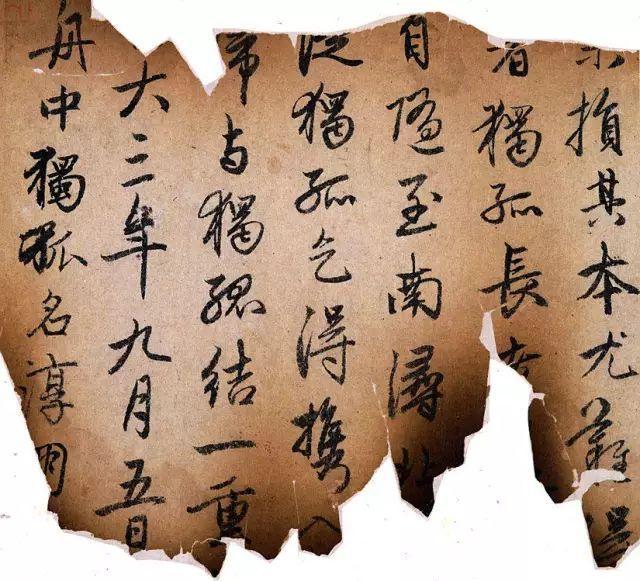 未損其本尤難得
者獨孤長
自隨至南潯北
從獨孤乞得攜入
帰与獨孤結一重
大三年九月五日
舟中獨孤名淳朋